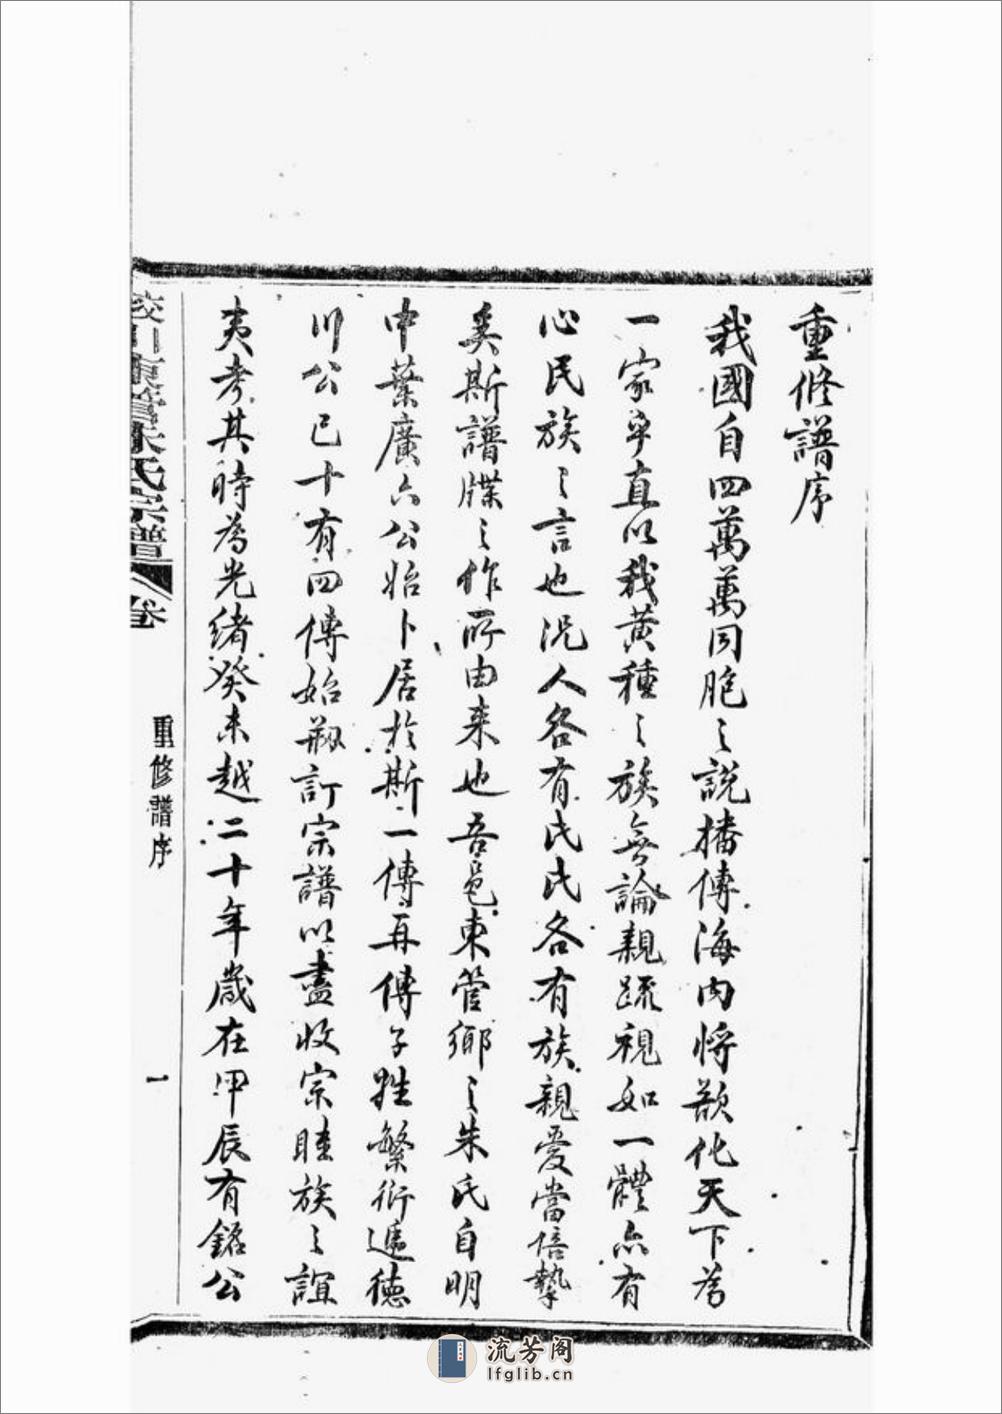 重修譜序
我國自四萬萬同胞之說播傳海內將欲化天下為
一家乎直以我黃種之族無論親疏視如一體亦有
心民族之言也況人各有氏氏各有族親愛當倍摯
矣斯譜牒之作所由来也吾邑東管鄉之朱氏自明
中葉廣六公始卜居於斯一傳再傳子姓繁衍遞德
川公已十有四傳始剏訂宗譜以盡收宗睦族之誼
夷考其時為光緒癸未越二十年歲在甲辰有公
川東管朱氏宗譜 卷
重修譜序
一
流芳阁
lfglib.cn